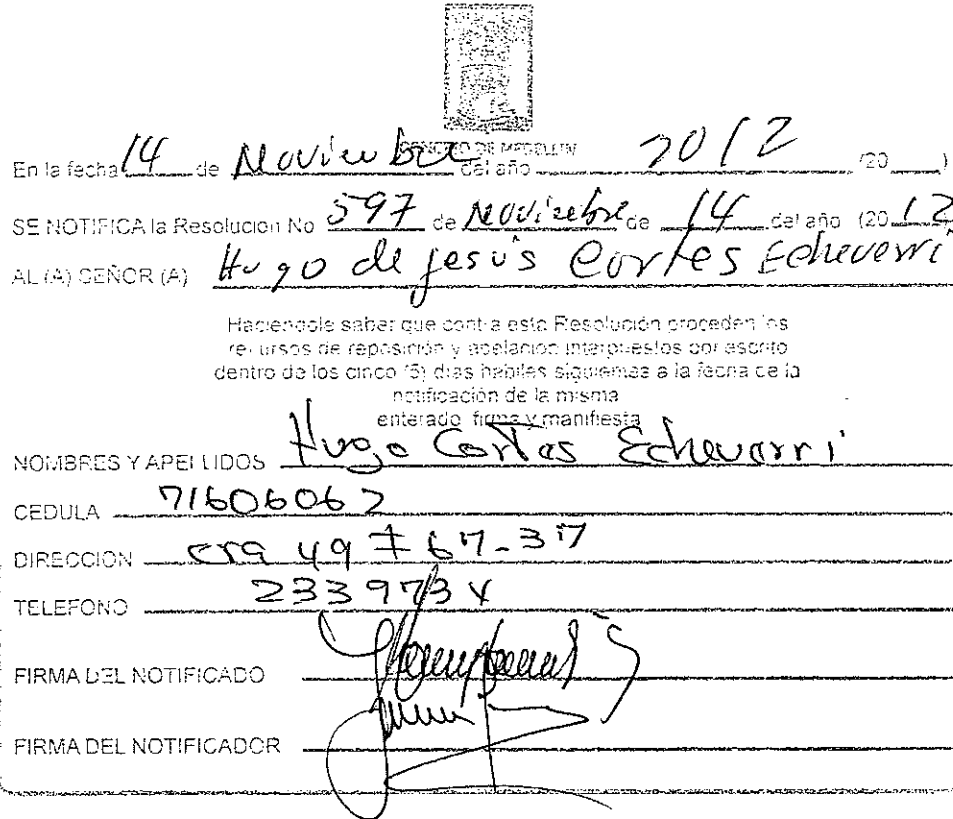 CONCEJO DE MEDELLIN
En la fecha 14 de Noviembre del año 2012 (20____)
SE NOTIFICA la Resolucion No 597 de Noviembre de 14 del año (2012
AL (A) SEÑOR (A) Hugo de Jesús Cortes Echeverri
Haciendole saber que contra esta Resolución proceden los
recursos de reposición y apelación interpuestos por escrito
dentro de los cinco (5) dias habiles siguientes a la fecha de la
notificación de la misma
enterado firma y manifiesta
NOMBRES Y APELLIDOS Hugo Cortes Echevarri
CEDULA 71606062
DIRECCION cra 49 # 67-37
TELEFONO
FIRMA DEL NOTIFICADO
FIRMA DEL NOTIFICADOR